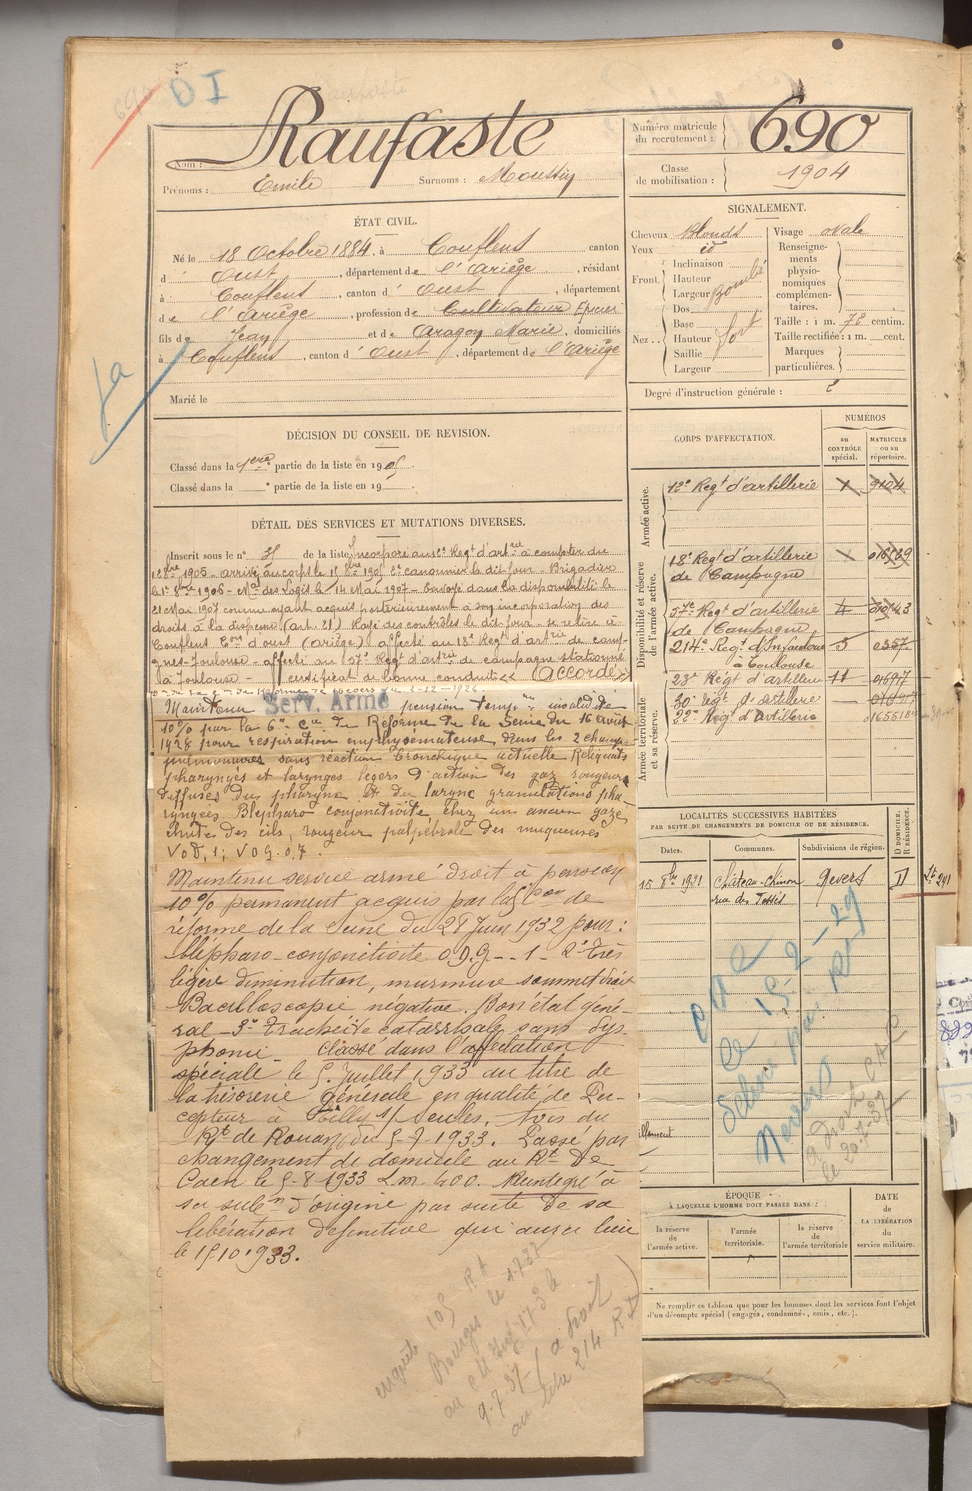 D I
Nom : Raufaste
Prénoms : Emile Surnoms :
Numéro matricule
du recrutement : 690
Classe
de mobilisation : 1904
ÉTAT CIVIL.
Né le 18 Octobre 1884, à Couflens canton
d' Oust, département de l'Ariège, résidant
à Couflens, canton d' Oust, département
de l'Ariège, profession de Cultivateur
fils de Jean et de Aragon Marie, domiciliés
à Couflens, canton d' Oust, département de l'Ariège
Marié le
SIGNALEMENT.
Cheveux Blonds
Yeux id
Front. Inclinaison
Hauteur
Largeur Bombé
Nez .. Dos
Base
Hauteur fort
Saillie
Largeur
Visage ovale
Renseigne-
ments
physio-
nomiques
complémen-
taires.
Taille : 1 m. 78 centim.
Taille rectifiée : 1 m. cent.
Marques
particulières.
Degré d'instruction générale : 2
DÉCISION DU CONSEIL DE REVISION.
Classé dans la 1ère partie de la liste en 1905.
Classé dans la e partie de la liste en 19
CORPS D'AFFECTATION.
NUMÉROS
au
CONTRÔLE
spécial.
MATRICULE
ou au
répertoire.
Armée active.
18e Regt d'artillerie
Disponibilité et réserve
de l'armée active.
18e Regt d'artillerie
de Campagne
57e Regt d'artillerie 4
de Campagne
214e Regt d'Infanterie 5
à Toulouse
Armée territoriale
et sa réserve.
23e Regt d'artillerie 11
30e Regt d'artillerie
Regt d'artillerie
DÉTAIL DES SERVICES ET MUTATIONS DIVERSES.
Inscrit sous le n° de la liste Incorporé au 18e Regt d'artrie à compter du
1905 - arrivé au corps le 1905 2e canonnier le dit jour - Brigadier
le 1906 - Mal des Logis le 14 Mai 1907 - Envoyé dans la disponibilité le
21 Mai 1907 comme ayant acquis postérieurement à son incorporation des
droits à la dispense (art. 21) Rayé des contrôles le dit jour - se retire à
Couflens Con d'oust (Ariège) affecté au 18e Regt d'artrie de camp-
gne - Toulouse - affecté au 57e Regt d'artrie de campagne stationné
à Toulouse - certificat de bonne conduite << Accordé >>
Maintenu Serv. Armé pension tempre invalidité
10% par la 6e Cion de Réforme de la Seine du 16 août
1928 pour respiration emphysémateuse dans les 2 champs
pulmonaires sans réaction bronchique actuelle Reliquats
pharyngés et laryngés légers d'action des gaz rougeurs
diffuses du pharynx et du larynx granulations pha-
ryngées Blepharo conjonctivite, chez un ancien gazé
chutes des cils, rougeur palpébrale des muqueuses
V O D, 1; V O G. 0,7.
Maintenu service armé droit à pension
10% permanent acquis par la Con de
réforme de la Seine du 28 Juin 1932 pour :
blépharo-conjonctivite O.D.G -- 1 - 2° Très
légère diminution, murmure sommet droit
Bacilloscopie négative. Bon état géné-
ral - 3° trachéite catarrhale sans dys-
phonie - Classé dans l'affectation
spéciale le 5. Juillet 1933 au titre de
la trésorerie générale en qualité de Per-
cepteur à Tilly s/ Seulles. Avis du
Rt de Rouen du 5-7-1933. Passé par
changement de domicile au Rt de
Caen le 5-8-1933 L.m. 400. Réintégré à
sa subon d'origine par suite de sa
libération définitive qui aura lieu
le 15.10.1933.
LOCALITÉS SUCCESSIVES HABITÉES
PAR SUITE DE CHANGEMENTS DE DOMICILE OU DE RÉSIDENCE.
Dates.
Communes.
Subdivisions de région.
D DOMICILE.
R RÉSIDENCE.
15 8bre 1921 Château-Chinon Nevers D
rue des Fossés
ÉPOQUE
À LAQUELLE L'HOMME DOIT PASSER DANS :
la réserve
de
l'armée active.
l'armée
territoriale.
la réserve
de
l'armée territoriale
DATE
de
LA LIBÉRATION
du
service militaire.
Ne remplir ce tableau que pour les hommes dont les services font l'objet
d'un décompte spécial (engagés, condamnés, omis, etc.).